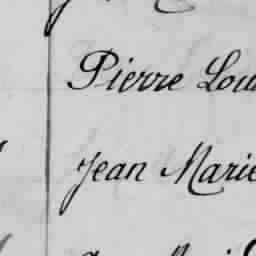 Pierre Lou
Jean Marie